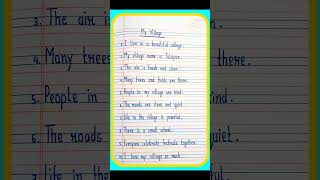 My Village
1. I live in a beautiful village.
2. My village name is
3. The air is fresh and clean.
4. Many trees and fields are there.
5. People in my village are kind.
6. The roads are clean and quiet.
7. Life in the village is peaceful.
8. There is a small school.
9. Everyone celebrate festivals together.
10. I love my village so much.
3. The air is
4. Many trees
5. People in
6. The roads
7. Life in the
there.
kind.
quiet.